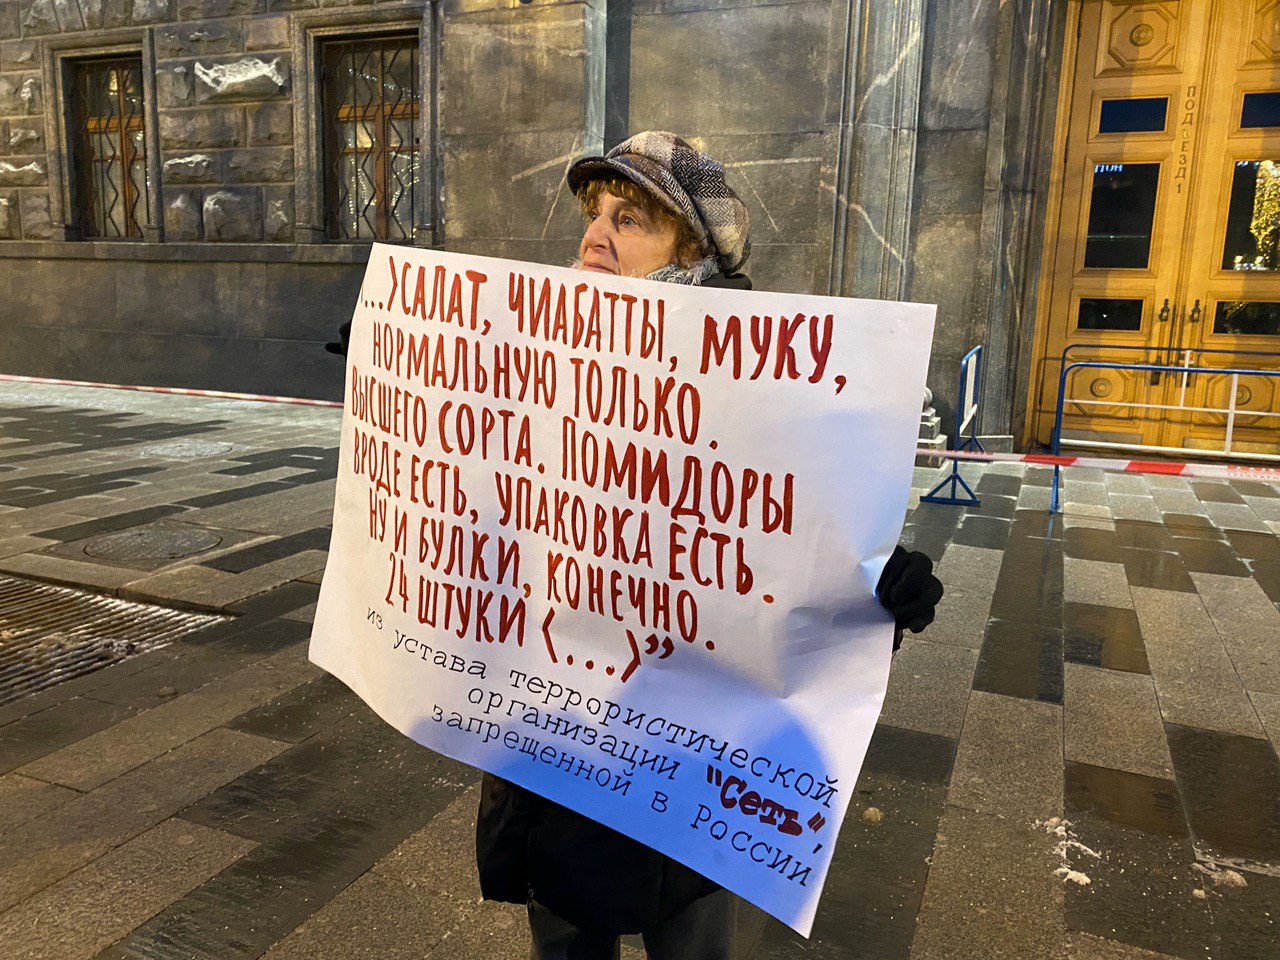 <...>САЛАТ, ЧИАБАТТЫ, МУКУ,
НОРМАЛЬНУЮ ТОЛЬКО.
ВЫСШЕГО СОРТА. ПОМИДОРЫ
ВРОДЕ ЕСТЬ, УПАКОВКА ЕСТЬ.
НУ И БУЛКИ, КОНЕЧНО.
24 ШТУКИ <...>”
из устава террористической
организации "Сеть",
запрещенной в России
ПОДЪЕЗД 1